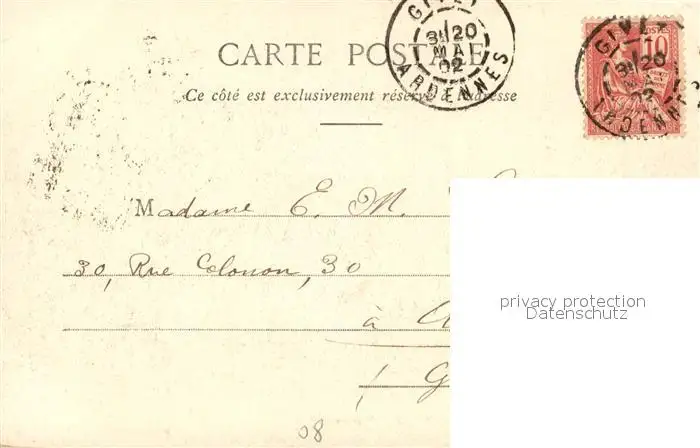 CARTE POSTALE
Ce côté est exclusivement réservé à l'adresse
GIVET
3E/20
MA
02
ARDENNES
POSTES
10
GIVET
3E/20
02
ARDENNES
Madame E. M.
30, Rue Colonon, 30
à
G
08
privacy protection
Datenschutz